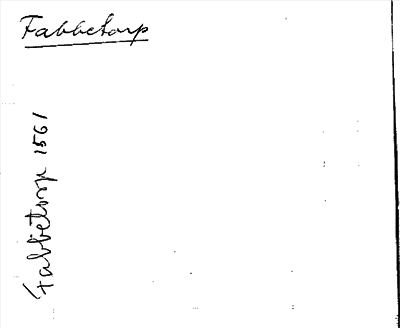 Fabbetorp
Fabbetorp 1561